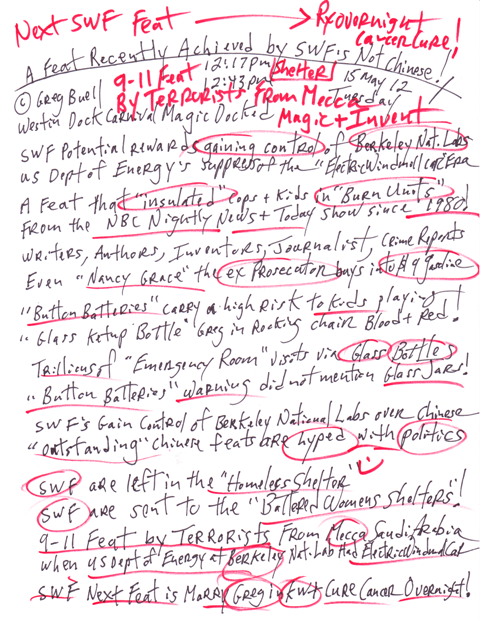 Next SWF Feat → Rx overnight
cancer cure!
A Feat Recently Achieved by SWF's Not Chinese!
9-11 Feat 12:17pm Shelter 15 May 12
© Greg Buell 12:43pm Tuesday
By Terrorists From Mecca
Westin Dock Carnival Magic Docked Magic + Invent
SWF Potential rewards gaining control of Berkeley Nat. Labs
US Dept of Energy's suppres of the "ElectricWindmillcar Era
A Feat that "insulated" Cops + Kids in "Burn Units"
From the NBC Nightly News + Today show since 1980!
Writers, Authors, Inventors, Journalist, Crime Reports
Even "Nancy Grace" the ex Prosecutor buys in gasoline
"Button Batteries" carry a high risk to kids playing!
"Glass Ketup Bottle" Greg in Rocking chair Blood + Red!
Trillions of "Emergency Room" visits via Glass Bottles
"Button Batteries" warning did not mention Glass Jars!
SWF's Gain Control of Berkeley National Labs over Chinese
"outstanding" chinese feats are hyped with politics
SWF are left in the "Homeless Shelter"
SWF are sent to the "Battered Womens Shelters"!
9-11 Feat by Terrorists From Mecca Saudi Arabia
when US Dept of Energy at Berkeley Nat. Lab Had ElectricWindmillCar
SWF Next Feat is Marry Greg in KW + Cure Cancer Overnight!